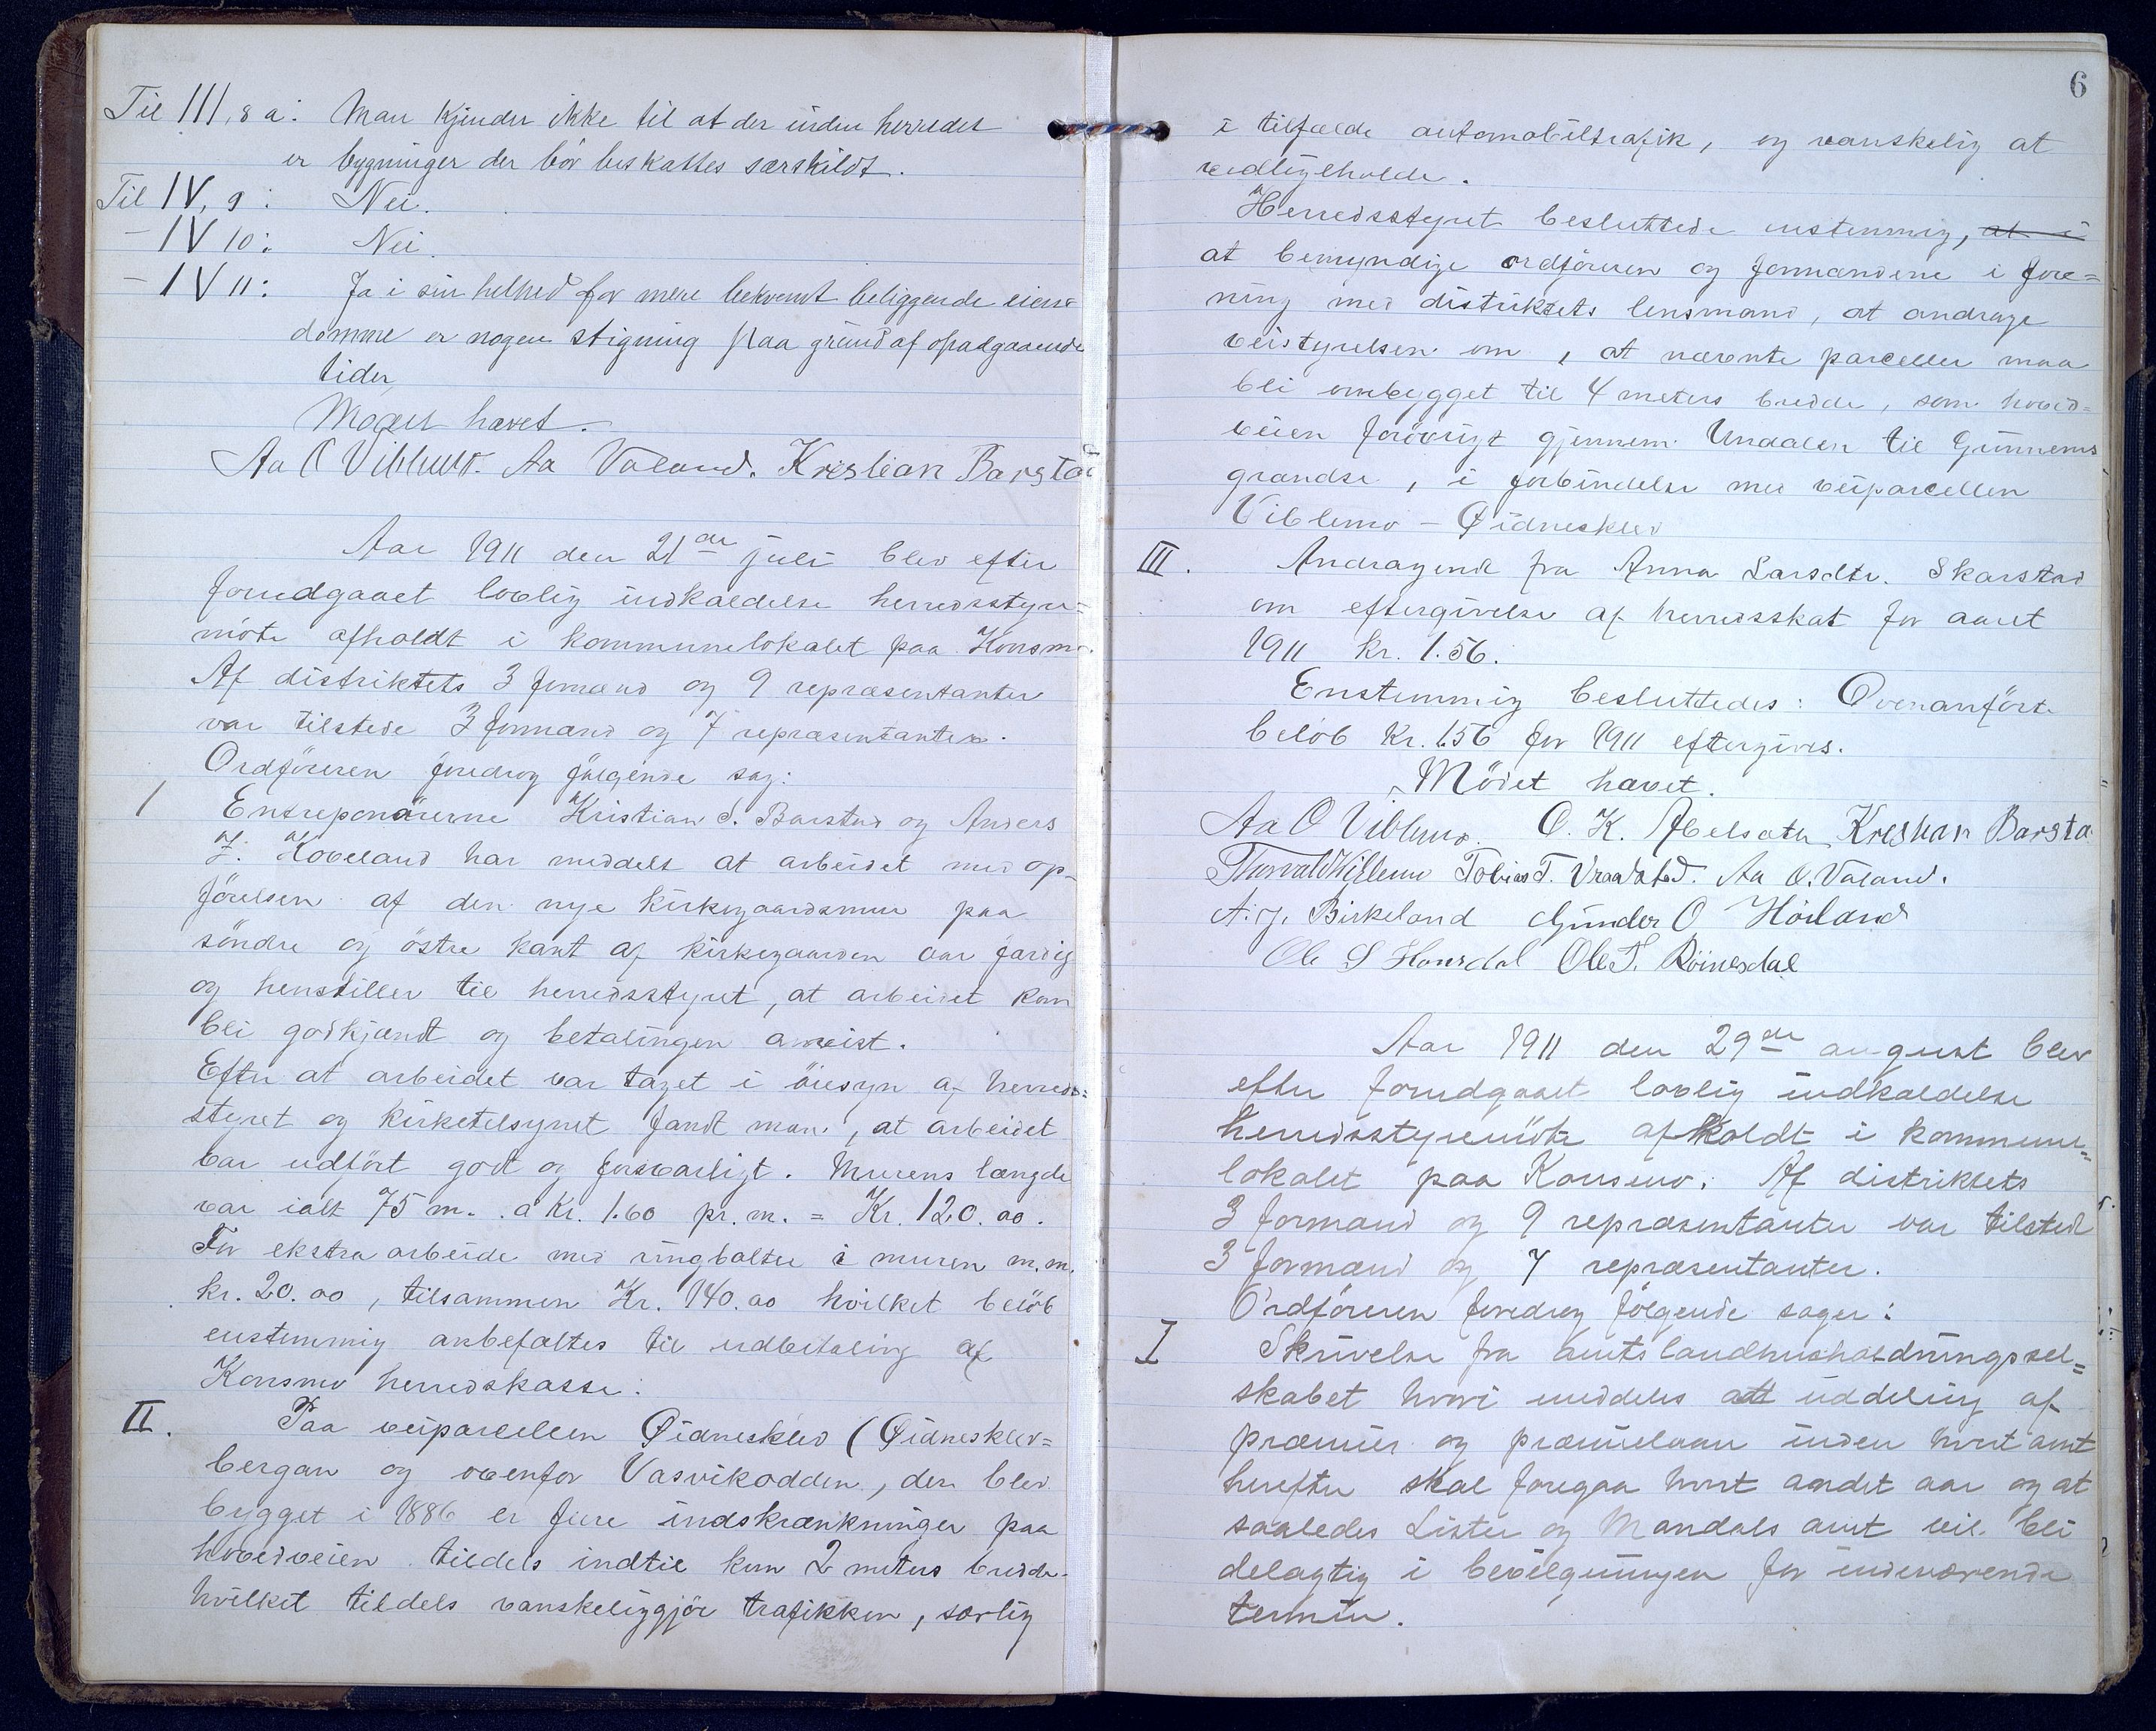 Til III, 8 a: Man kjender ikke til at der inden herredet
er bygninger der bör beskattes særskildt.
Til IV, 9: Nei.
– IV 10: Nei.
– IV 11: Ja i sin helhed for mere bekvemt beliggende eien-
domme er nogen stigning paa grund af opadgaaende
tider,
Mödet hævet.
Aa O Viblemo. Aa Valand. Kristian Barstad
Aar 1911 den 21de juli blev efter
forudgaaet lovlig indkaldelse herredsstyre=
möte afholdt i kommunelokalet paa Konsmo.
Af distriktets 3 formænd og 9 repræsentanter
var tilstede 3 formænd og 7 repræsentanter.
Ordföreren foredrog fölgende sag:
I Entreponörerne Kristian S. Barstad og Anders
Z. Hoveland har meddelt at arbeidet med op-
förelsen af den nye kirkegaardsmur paa
söndre og östre kant af kirkegaarden var færdig
og henstiller til herredsstyret, at arbeidet kan
bli godkjændt og betalingen anvist.
Efter at arbeidet var taget i öiesyn af herreds=
styret og kirketilsynet fandt man, at arbeidet
var udfört godt og forsvarligt. Murens længde
var ialt 75 m. a Kr. 1.60 pr. m. = Kr. 120.00.
For ekstra arbeide med ringbolter i muren m.m.
kr. 20.00, tilsammen Kr. 140.00 hvilket belöb
enstemmig anbefaltes til udbetaling af
Konsmo herredskasse.
II. Paa veiparcellen Öidnesklev (Öidnesklev=
bergan og ovenfor Vasvikodden, der blev
bygget i 1886 er flere indskrænkninger paa
hovedveien tildels indtil kun 2 meters bredde
hvilket tildels vanskeliggjör trafikken, særlig
6
i tilfælde automobiltrafik, og vanskelig at
vedligeholde.
Herredsstyret besluttede enstemmig, at i
at bemyndige ordföreren og formændene i fore=
ning med distriktets lensmand, at andrage
veistyrelsen om, at nævnte parceller maa
bli ombygget til 4 meters bredde, som hoved=
veien forövrigt gjennem Undalen til Grinnems
grændse, i forbindelse med veiparcellen
Viblemo – Öidnesklev
III. Andragende fra Anna Larsdtr. Skarstad
om eftergivelse af herredsskat for aaret
1911 kr. 1.56.
Enstemmig besluttedes: Ovenanförte
belöb kr. 1.56 for 1911 eftergives.
Mödet hævet.
Aa O Viblemo. O. K. Abelsæter Kristian Barsta
Thorvald Viblemo Tobias T. Vraadstad. Aa O. Valand.
A. J. Birkeland Gunder O Höiland
Ole S Homdal Ole T. Röinesdal
Aar 1911 den 29de august blev
efter forudgaaet lovlig indkaldelse
herredsstyremöte afholdt i kommune=
lokalet paa Konsmo. Af distriktets
3 formænd og 9 repræsentanter var tilstede
3 formænd og 7 repræsentanter.
Ordföreren foredrog fölgende sager:
I Skrivelse fra amtslandhusholdningssel=
skabet hvori meddeles at uddeling af
præmier og præmielaan inden hvert amt
herefter skal foregaa hvert andet aar og at
saaledes Lister og Mandals amt vil bli
delagtig i bevilgningen for indeværende
termin.